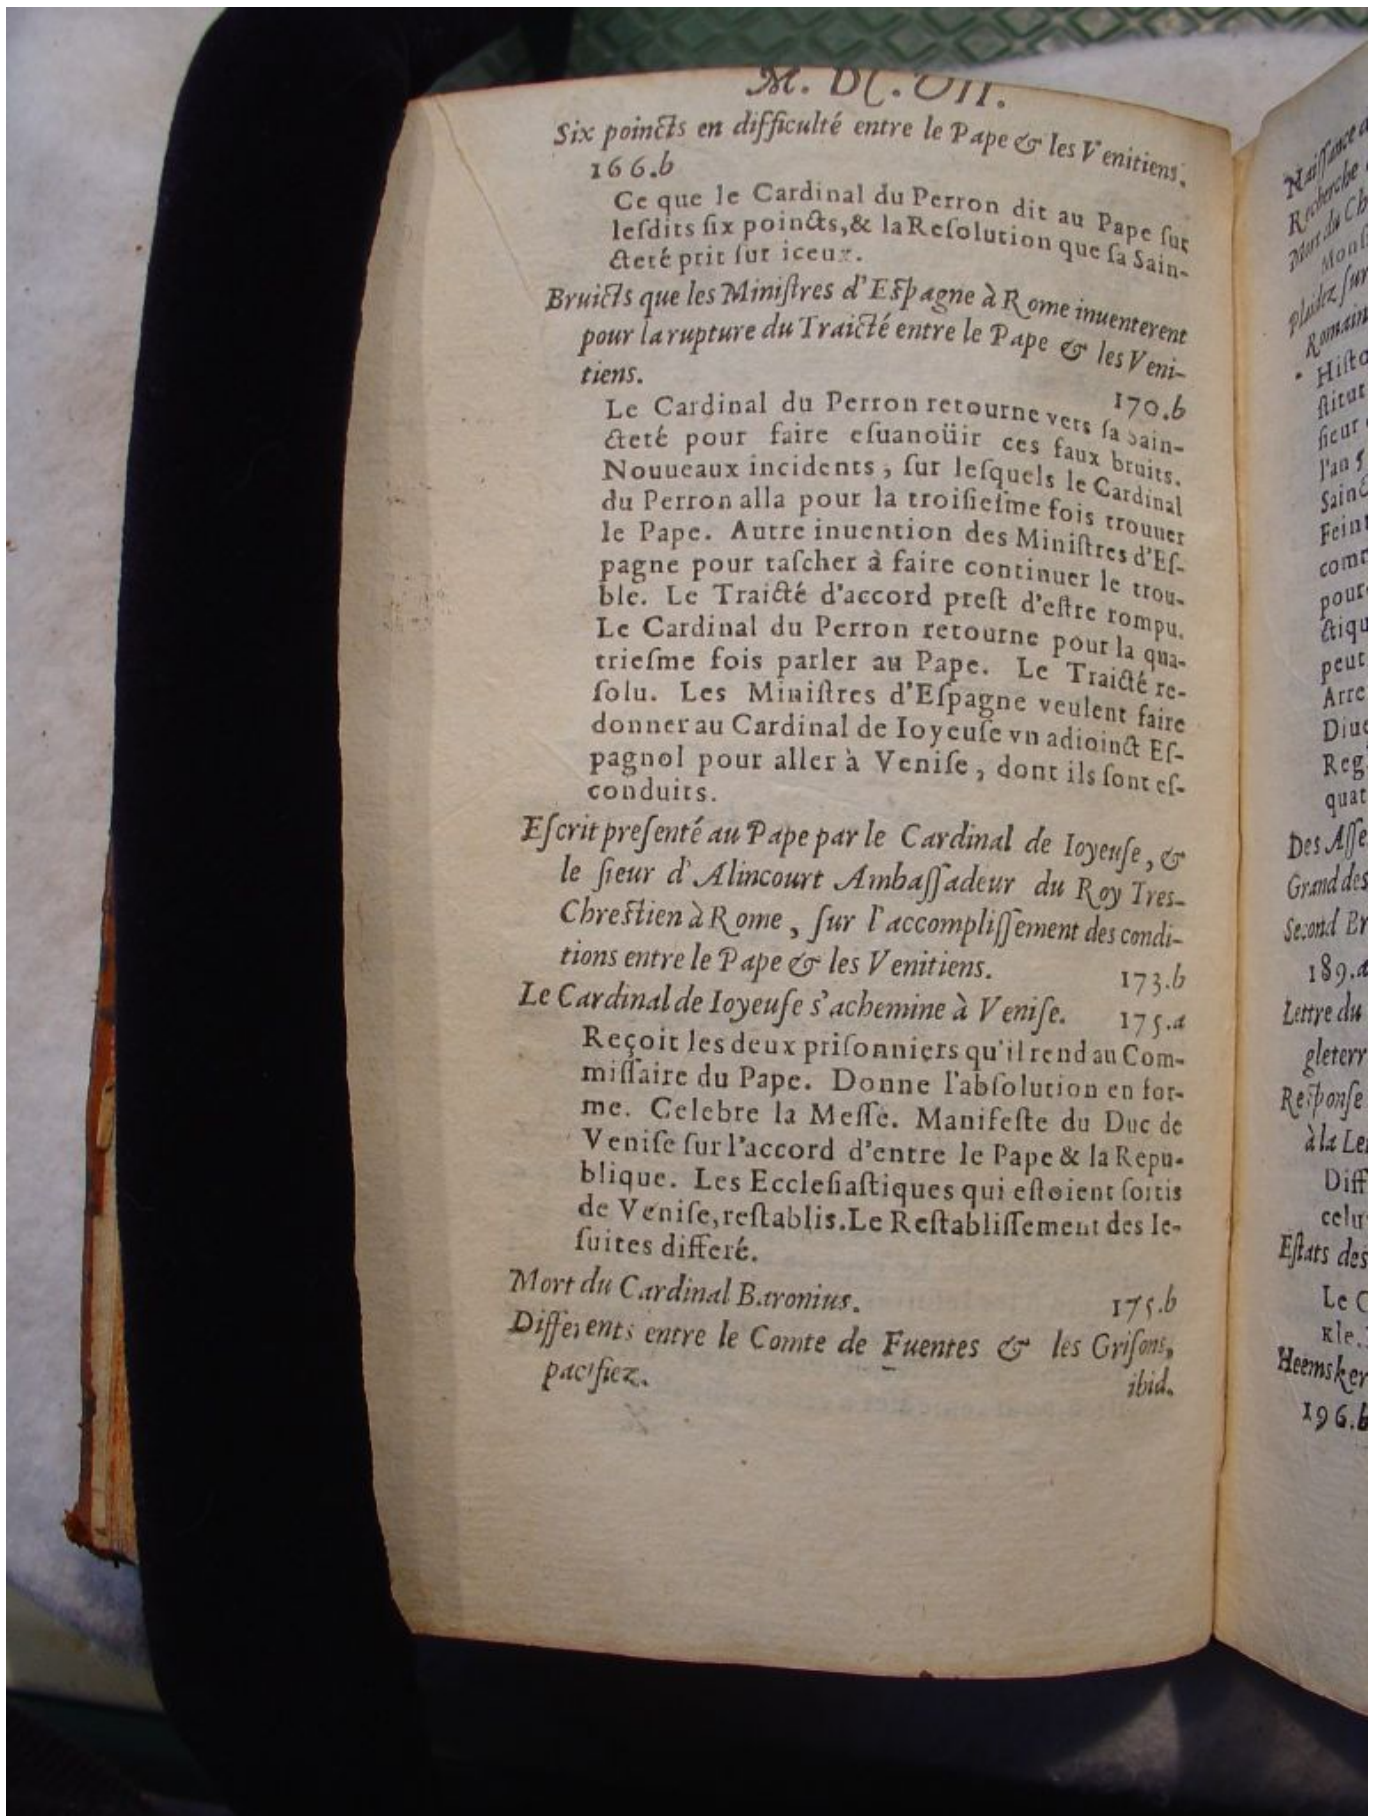 M. DC. VII.
Six poincts en difficulté entre le Pape & les Venitiens.
166.b
Ce que le Cardinal du Perron dit au Pape sur
lesdits six poincts, & la Resolution que sa Sain-
cteté prit sur iceux.
Bruicts que les Ministres d'Espagne à Rome inuenterent
pour la rupture du Traicté entre le Pape & les Veni-
tiens. 170.b
Le Cardinal du Perron retourne vers sa Sain-
cteté pour faire esuanoüir ces faux bruits.
Nouueaux incidents, sur lesquels le Cardinal
du Perron alla pour la troisiesme fois trouuer
le Pape. Autre inuention des Ministres d'Es-
pagne pour tascher à faire continuer le trou-
ble. Le Traicté d'accord prest d'estre rompu.
Le Cardinal du Perron retourne pour la qua-
triesme fois parler au Pape. Le Traicté re-
solu. Les Ministres d'Espagne veulent faire
donner au Cardinal de Ioyeuse vn adioinct Es-
pagnol pour aller à Venise, dont ils sont es-
conduits.
Escrit presenté au Pape par le Cardinal de Ioyeuse, &
le sieur d'Alincourt Ambassadeur du Roy Tres-
Chrestien à Rome, sur l'accomplissement des condi-
tions entre le Pape & les Venitiens. 173.b
Le Cardinal de Ioyeuse s'achemine à Venise. 175.a
Reçoit les deux prisonniers qu'il rend au Com-
missaire du Pape. Donne l'absolution en for-
me. Celebre la Messe. Manifeste du Duc de
Venise sur l'accord d'entre le Pape & la Repu-
blique. Les Ecclesiastiques qui estoient sortis
de Venise, restablis. Le Restablissement des Ie-
suites differé.
Mort du Cardinal Baronius. 175.b
Differents entre le Comte de Fuentes & les Grisons,
pacifiez. ibid.
Naissance
Recherche
Mort du Ch
Mons
Plaidez sur
Romain
Histo
stitut
sieur
l'an 5
Sainct
Feint
comm
pour
ctiqu
peut
Arre
Diue
Reg
quat
Des Asse
Grand des
Second Br
189.a
Lettre du
gleterr
Response
à la Let
Diff
celu
Estats des
Le C
Kle.
Heemsker
196.b